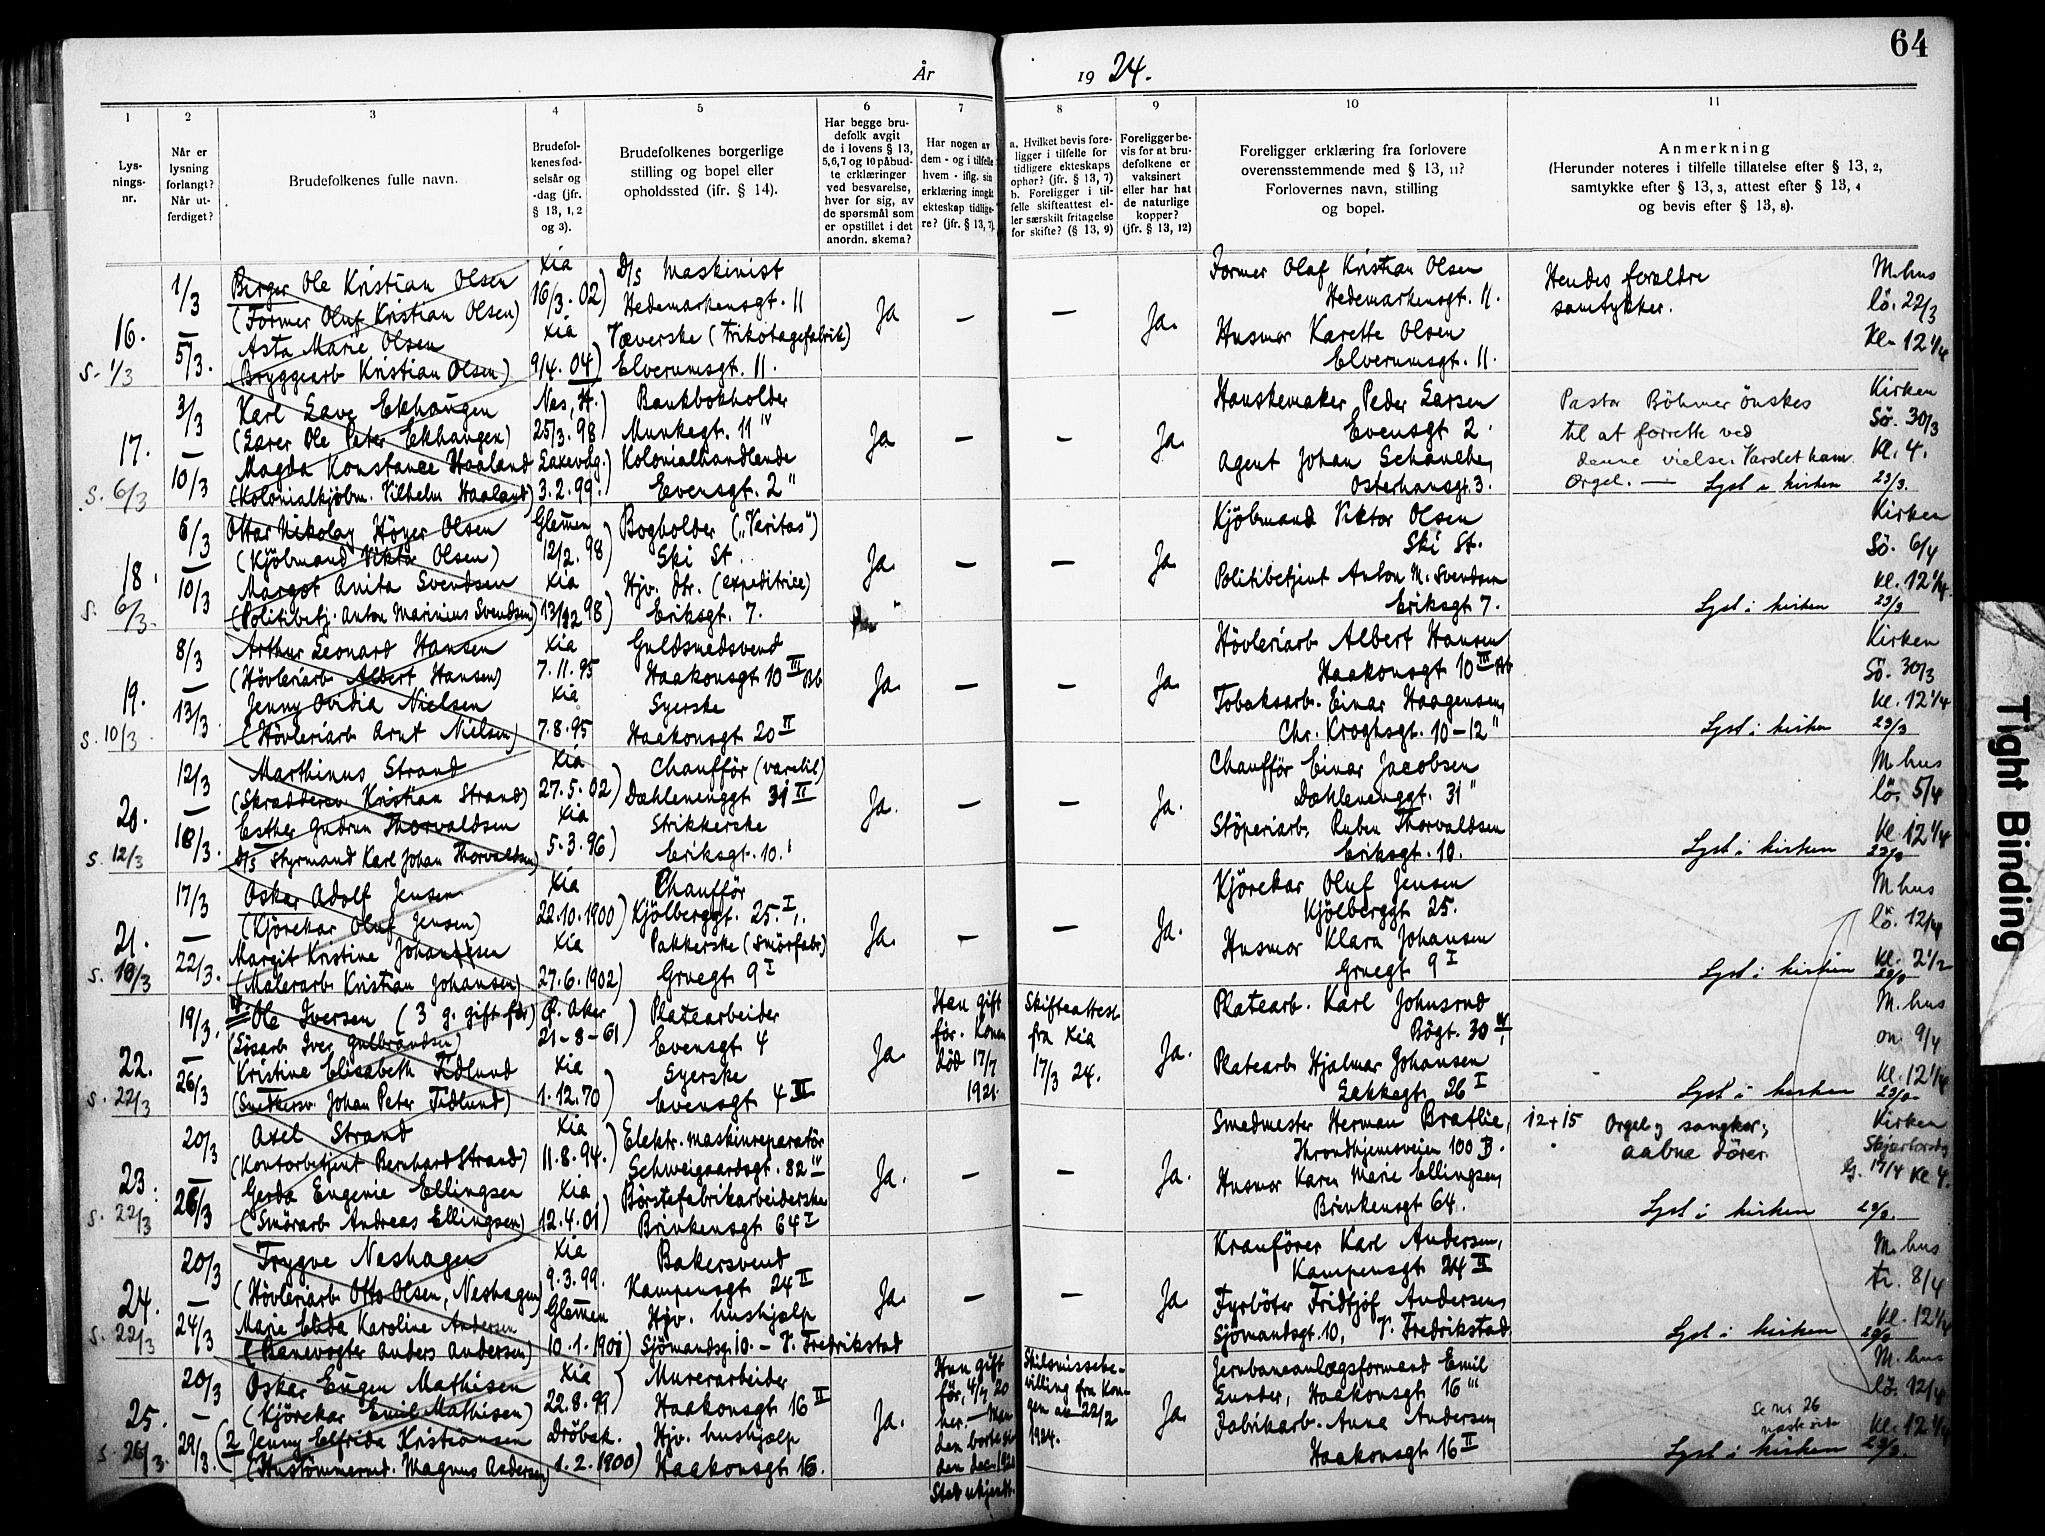 64
År 1924.
1
2
3
4
5
6
7
8
9
10
11
Lys-
nings-
nr.
Når er
lysning
forlangt?
Når ut-
ferdiget?
Brudefolkenes fulle navn.
Brudefol-
kenes fød-
selsår og
-dag (jfr.
§ 13, 1, 2
og 3).
Brudefolkenes borgerlige
stilling og bopel eller
opholdssted (jfr. § 14).
Har begge bru-
defolk avgit
de i lovens § 13,
5,6,7 og 10 påbud-
te erklæringer
ved besvarelse,
hver for sig, av
de spørsmål som
er opstillet i det
anordn. skema?
Har nogen av
dem - og i tilfelle
hvem - iflg. sin
erklæring inngått
ekteskap tidlige-
re? (jfr. § 13, 7).
a. Hvilket bevis fore-
ligger i tilfelle for
tidligere ekteskaps
ophør? (jfr. § 13, 7)
b. Foreligger i til-
felle skifteattest el-
ler særskilt fritagelse
for skifte? (§ 13, 9)
Foreligger be-
vis for at bru-
defolkene er
vaksinert
eller har hat
de naturlige
kopper?
(jfr. § 13, 12)
Foreligger erklæring fra forlovere
overensstemmende med § 13, 11?
Forlovernes navn, stilling
og bopel.
Anmerkning
(Herunder noteres i tilfelle tillatelse efter § 13, 2,
samtykke efter § 13, 3, attest efter § 13, 4
og bevis efter § 13, 8).
16.
S. 1/3
1/3
—
5/3.
Birger Ole Kristian Olsen
(Former Oluf Kristian Olsen)
Asta Marie Olsen
(Bryggearb Kristian Olsen)
Xia
16/3. 02)
Xia
9/4. 04)
D/s Maskinist
Hedemarkensgt. 11
Væverske (Trikotagefabrik)
Elverumsgt. 11.
Ja
—
—
Ja.
Former Olaf Kristian Olsen
Hedemarkensgt. 11.
Husmor Karette Olsen
Elverumsgt. 11.
Hendes forældre
samtykker.
M.hus
lö. 22/3
Kl. 12 1/4
17.
S. 6/3
3/3
—
10/3
Karl Lave Ekhaugen
(Lærer Ole Peter Ekhaugen)
Magda Konstance Haaland
(Kolonialkjöbm. Vilhelm Haaland)
Nes, H.
25/3. 98)
3. 2. 99.
Bankbokholder
Munkegt. 11 IV
Kolonialhandlende
Evensgt. 2 "
Ja
—
—
Ja.
Hanskemaker Peder Larsen
Evensgt 2.
Agent Johan
Osterhausgt. 3.
Pastor Böhmer önskes
til at forrette ved
denne vielse. Varslet ham.
Orgel. — Lyst i kirken 23/3.
Kirken
Sö. 30/3
Kl. 4.
18.
S. 6/3.
6/3
—
10/3
Ottar Nikolay Höyer Olsen
(Kjöbmand Viktor Olsen)
Margot Anita Svendsen
(Politibetj. Anton Marinius Svendsen)
Glemen
12/2. 98)
Xia
13/12 98)
Bogholder ("Veritas")
Ski St.
Hjv. dtr. (expeditrice)
Eriksgt. 7.
Ja.
—
—
Ja
Kjöbmand Viktor Olsen
Ski St.
Politibetjent Anton M. Svendsen
Eriksgt 7.
Lyst i kirken 23/3
Kirken
Sö. 6/4
Kl. 12 1/4.
19.
S. 10/3
8/3
—
13/3.
Arthur Leonard Hansen
(Hövleriarb Albert Hansen)
Jenny Ovidia Nielsen
(Hövleriarb Arnt Nielsen)
Xia
7. 11. 95
Xia
7. 8. 95
Guldsmedsvend
Haakonsgt 10 III
Syerske
Haakonsgt 20 II
Ja.
—
—
Ja.
Hövleriarb Albert Hansen
Haakonsgt 10 III
Tobaksarb. Einar Haagensen,
Chr. Kroghsgt. 10 – 12 "
Lyst i kirken 23/3
Kirken
Sö. 30/3
Kl. 12 1/4
20.
S. 12/3
12/3
—
18/3.
Marthinus Strand
(Skrædderev Kristian Strand)
Esther Gudrun Thorvaldsen
D/s Styrmand Karl Johan Thorvaldsen)
Xia
27. 5. 02)
Xia
5. 3. 96)
Chaufför (varebil)
Dæhlenenggt 31 II
Strikkerske
Eriksgt. 10.
Ja.
—
—
Ja.
Chaufför Einar Jacobsen
Dæhlenenggt. 31 "
Stöperiarb. Ruben Thorvaldsen
Eriksgt. 10.
Lyst i kirken
M.hus
lö. 5/4
Kl. 12 1/4
21.
17/3
—
22/3.
Oskar Adolf Jensen
(Kjörekar Oluf Jensen)
Margit Kristine Johansen
(Malerarb Kristian Johansen)
Xia
22. 10. 1900)
Xia
27. 6. 1902)
Chaufför
Kjölberggt. 25. I
Pakkerske (Smörfabr)
Gruegt 9 I
Ja.
—
—
Ja.
Kjörekar Oluf Jensen
Kjölberggt 25.
Husmor Klara Johansen
Gruegt 9 I
Lyst i kirken
M.hus
lö. 12/4
Kl. 2 1/2
22.
S. 22/3
19/3.
—
26/3
Ole Iversen (3 g. gift för)
(Lösarb Iver Gulbrandsen)
Kristine Elisabeth Tidlund
(Snedkersv Johan Peter Tidlund)
Ø. Aker
21 – 8 – 61)
Xia
1. 12. 70)
Platearbeider
Evensgt 4
Syerske
Evensgt 4 III
Ja.
Han gift
för. Konen
död 17/7
1921.
Skifteattest
fra Xia
17/3 24.
Ja.
Platearb. Karl Johnsrud
Bögt. 30 IV
Platearb Hjalmar Johansen
Lakkegt. 26 I
Lyst i kirken
M.hus
on. 9/4
Kl. 12 1/4
23.
S. 22/3
20/3
—
26/3
Axel Strand
(Kontorbetjent Bernhard Strand)
Gerda Eugenie Ellingsen
(Smörarb Andreas Ellingsen)
Xia
11. 8. 94.)
Xia
12. 4. 01)
Elektr. maskinreparatör
Schweigaardsgt. 82 IV
Börstefabrikarbeiderske
Brinkensgt 64 I
Ja.
—
—
Ja.
Smedmester Herman Bratlie,
Throndhjemsveien 100 B.
Husmor Karen Marie Ellingsen,
Brinkensgt 64.
12 + 15
Orgel og sangkor;
aabne dörer
Lyst i kirken
Kirken
Skjærtorsdg
17/4 Kl. 4.
24.
S. 22/3
20/3
—
24/3
Trygve Neshagen
(Hövleriarb Otto Olsen, Neshagen)
Marie Elida Karoline Andersen
(Banevogter Anders Andersen)
Xia
9. 3. 99.
Glemen
10. 1. 1901)
Bakersvend
Kampensgt 24 II
Hjv. hushjælp
Sjömandsg. 10. – V. Fredrikstad
Ja.
—
—
Ja.
Kranförer Karl Andersen,
Kampensgt 24 II
Fyrböter Fridtjof Andersen,
Sjömandsgt. 10, V. Fredrikstad
Lyst i kirken
M.hus
tr. 8/4
Kl. 12 1/4
25.
S. 26/3.
20/3
—
29/3.
Oskar Eugen Mathisen
(Kjörekar Emil Mathisen)
(2 Jenny Elfrida Kristiansen
(Hustömmermd. Magnus Andersen)
Xia
22. 8. 99)
Dröbak.
1. 2. 1900)
Murerarbeider
Haakonsgt 16 II
Hjv. hushjælp
Haakonsgt 16.
Ja.
Hun gift
för, 4/7 20
her. – Man
den borte si
den dec. 1920
Sted ukjendt.
Skilsmissebe-
villing fra Kon-
gen av 22/2
1924.
Ja.
Jernbaneanlægsformand Emil
Lunder, Haakonsgt 16 "
Fabrikarb. Anna Andersen,
Haakonsgt 16 II
Se nr 26
næste side
Lyst i kirken
M.hus
lö. 12/4
Kl. 12 1/4
Tight Binding